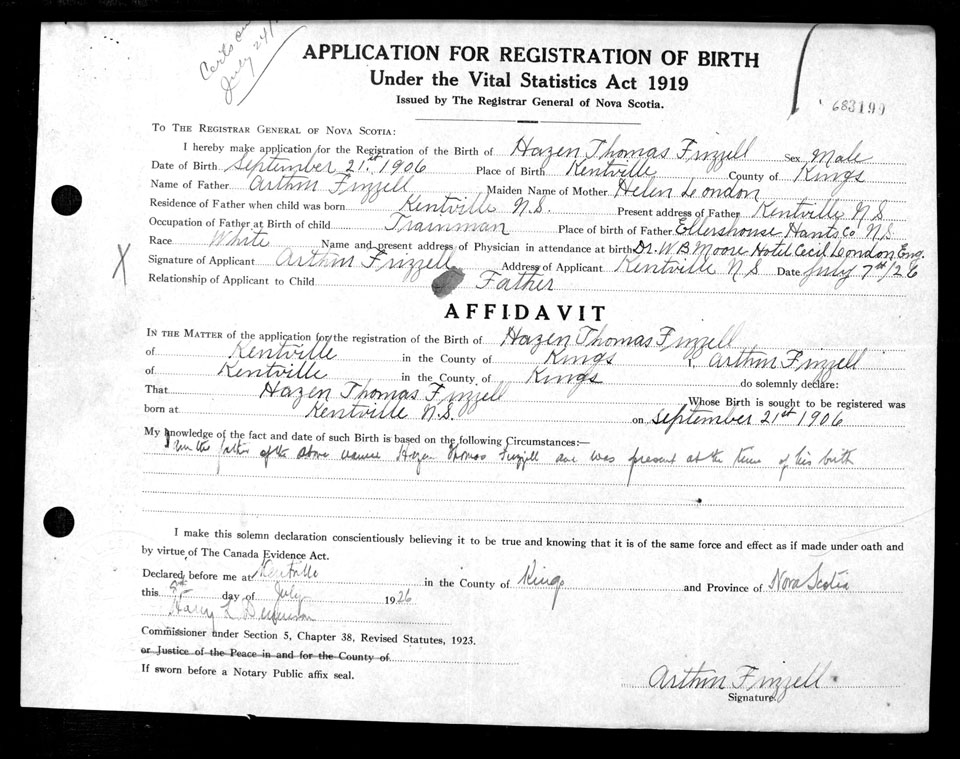 Certs on
July 24/
APPLICATION FOR REGISTRATION OF BIRTH
Under the Vital Statistics Act 1919
Issued by The Registrar General of Nova Scotia.
683199
TO THE REGISTRAR GENERAL OF NOVA SCOTIA:
I hereby make application for the Registration of the Birth of Hazen Thomas Frizzell Sex Male
Date of Birth September 21st 1906 Place of Birth Kentville County of Kings
Name of Father Arthur Frizzell Maiden Name of Mother Helen London
Residence of Father when child was born Kentville N.S. Present address of Father Kentville N S
Occupation of Father at Birth of child Trainman Place of birth of Father Ellershouse Hants Co N S
Race White Name and present address of Physician in attendance at birth Dr. W B Moore Hotel Cecil London Eng.
X
Signature of Applicant Arthur Frizzell Address of Applicant Kentville N S Date July 7th/26
Relationship of Applicant to Child Father
AFFIDAVIT
IN THE MATTER of the application for the registration of the Birth of Hazen Thomas Frizzell
of Kentville in the County of Kings I, Arthur Frizzell
of Kentville in the County of Kings do solemnly declare:
That Hazen Thomas Frizzell Whose Birth is sought to be registered was
born at Kentville N.S. on September 21st 1906
My knowledge of the fact and date of such Birth is based on the following Circumstances:—
I am the father of the above named Hazen Thomas Frizzell and was present at the time of his birth
I make this solemn declaration conscientiously believing it to be true and knowing that it is of the same force and effect as if made under oath and
by virtue of The Canada Evidence Act.
Declared before me at Kentville in the County of Kings and Province of Nova Scotia
this day of July 1926
Harry L
Commissioner under Section 5, Chapter 38, Revised Statutes, 1923.
or Justice of the Peace in and for the County of
If sworn before a Notary Public affix seal.
Arthur Frizzell
Signature.